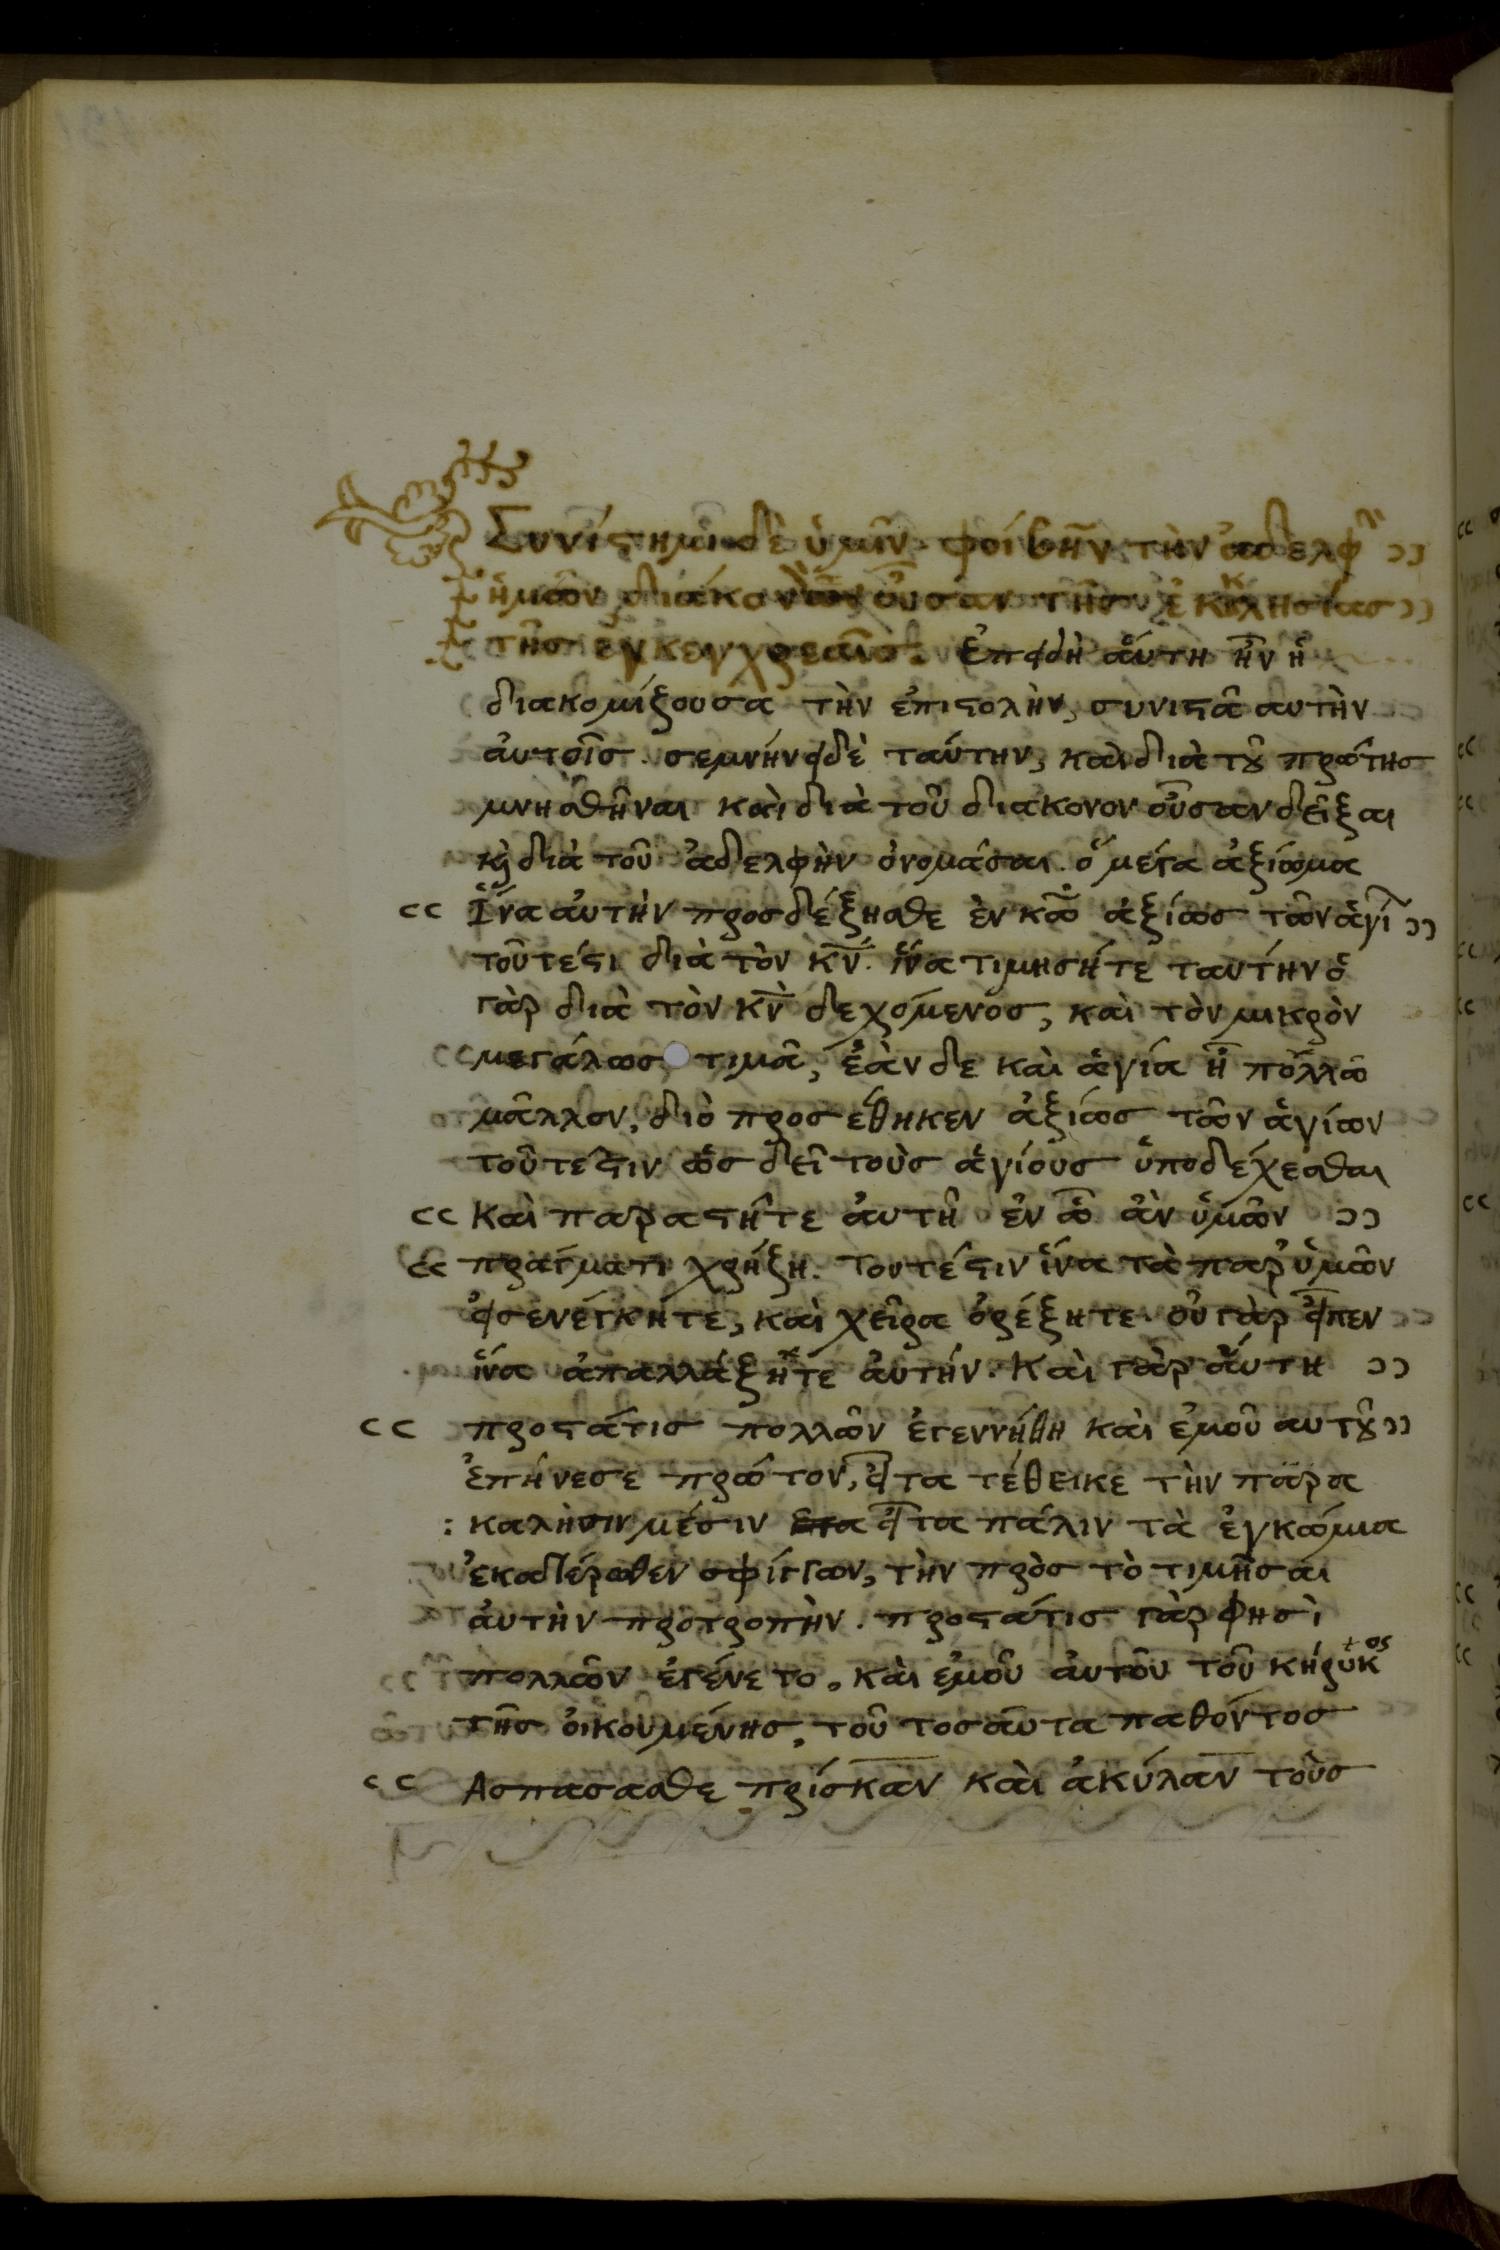 Συνίστημι δὲ ὑμῖν φοίβην τὴν ἀδελφὴν
ἡμῶν διάκονον οὖσαν τῆς ἐκκλησίας
τῆς ἐγκεγχρεαῖς. Ἐπειδὴ αὕτη ἦν ἡ
διακομίζουσα τὴν ἐπιστολὴν, συνιστᾶ αυτὴν
ἀυτοῖς. σεμνήν δὲ ταύτην, καὶ διὰ τοῦ πρώτης
μνησθῆναι καὶ διὰ τοῦ διακονον οὖσαν δεῖξαι
καὶ διὰ τοῦ ἀδελφὴν ὀνομάσαι. ὃ μέγα ἀξίωμα
Ἵνα αὐτὴν προσδέξησθε ἐν κω ἀξίως τῶν ἁγί
τοῦτέστι διὰ τὸν κν. ἵνα τιμησήτε ταυτήν ὁ
γὰρ διὰ τὸν κν δεχόμενος, καὶ τὸν μικρὸν
μεγάλως τιμᾶ, ἐὰν δε καὶ ἁγία ἦ πολλῶ
μᾶλλον, διὸ προσέθηκεν ἀξίως τῶν ἁγίων
τοῦτέστιν ὡς δεῖ τοὺς ἁγίους ὑποδέχεσθαι
Καὶ παραστῆτε ἀυτῆ ἐν ὧ ἀν ὑμῶν
πράγματι χρήζη. τουτέστιν ἵνα τὰ παρ' ὑμῶν
εἰσενέγκητε, καὶ χεῖρα ὀρέξητε. οὐ γὰρ εἶπεν
ἵνα ἀπαλλάξητε ἀυτήν. Καὶ γὰρ ἅυτη
προστάτις πολλῶν ἐγεννήθη καὶ ἐμοῦ αυτοῦ
ἐπήνεσε πρῶτον, εἶτα τέθεικε τὴν παρα
καλησιν μέσιν εἶτα πάλιν τὰ ἐγκώμια
ἑκατέρωθεν σφίγγων, τὴν πρὸς τὸ τιμῆσαι
ἀυτὴν προτροπὴν. προστάτις γὰρ φησὶ
πολλῶν ἐγένετο. καὶ εμοῦ ἀυτοῦ τοῦ κήρυκος
τῆς ὀικουμένης, τοῦ τοσαῦτα παθόντος
Ασπασασθε πρίσκαν καὶ ἀκύλαν τοὺς